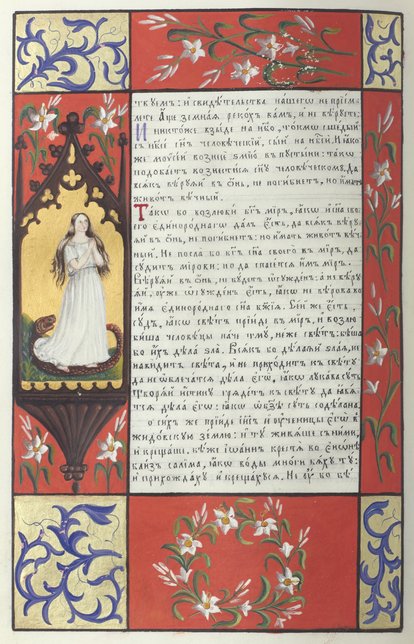 твуемъ: и свидѣтельства нашегѡ не прїем-
лете Аще, земнаѧ рекохъ вамъ, и не вѣруете:
И никтоже взыде на нб҃о, токмѡ сшедый
съ нб҃се сн҃ъ человѣческїй, сый на нб҃сѝ. И ꙗко-
же мѡѷсей вознесе ѕмїю въ пꙋстыни: такѡ
подобаетъ вознестисѧ сн҃ꙋ человѣческомꙋ. Да
всѧкъ вѣрꙋѧй въ Онь, не погибнетъ: но имать
животъ вѣчный.
Такѡ бо возлюби бг҃ъ мїръ, ꙗкѡ и сн҃а сво-
его единороднаго далъ єсть, да всѧкъ вѣрꙋ-
ѧй въ Онь, не погибнетъ: но имать животъ вѣч-
ный. Не посла бо бг҃ъ сн҃а своего въ мїръ, да
сꙋдитъ мїрови: но да спасетсѧ имъ мїръ.
Вѣрꙋѧй въ Онь, не бꙋдетъ ѡсꙋжденъ: а не вѣрꙋ-
ѧй, ᲂуже ѡсꙋжденъ єсть, ꙗкѡ не вѣрова во
имѧ единороднагѡ сн҃а бж҃їѧ. Сей же єсть
сꙋдъ, ꙗкѡ свѣтъ прїиде въ мїръ, и возлю-
биша человѣцы паче тмꙋ, неже свѣтъ: бѣша
бо ихъ дѣла ѕла. Всѧкъ бо дѣлаѧй ѕлаѧ, не
навидитъ свѣта, и не приходитъ къ свѣтꙋ
да не ѡбличатсѧ дѣла єгѡ, ꙗкѡ лꙋкава сꙋть
Творѧй истинꙋ грѧдетъ къ свѣтꙋ да ꙗвѧт-
сѧ дѣла єгѡ: ꙗкѡ ѡ бз҃ѣ сꙋть содѣлана.
о сихъ же прїиде іи҃съ и ᲂученицы єгѡ въ
жидовскꙋю землю: и тꙋ живѧше съ ними,
и крещаше. Бѣ же іѡаннъ крестѧ во єнѡнѣ
близъ салима, ꙗкѡ воды многи бѧхꙋ тꙋ:
и прихождахꙋ и крещахꙋсѧ. Не ᲂу бо бѣ